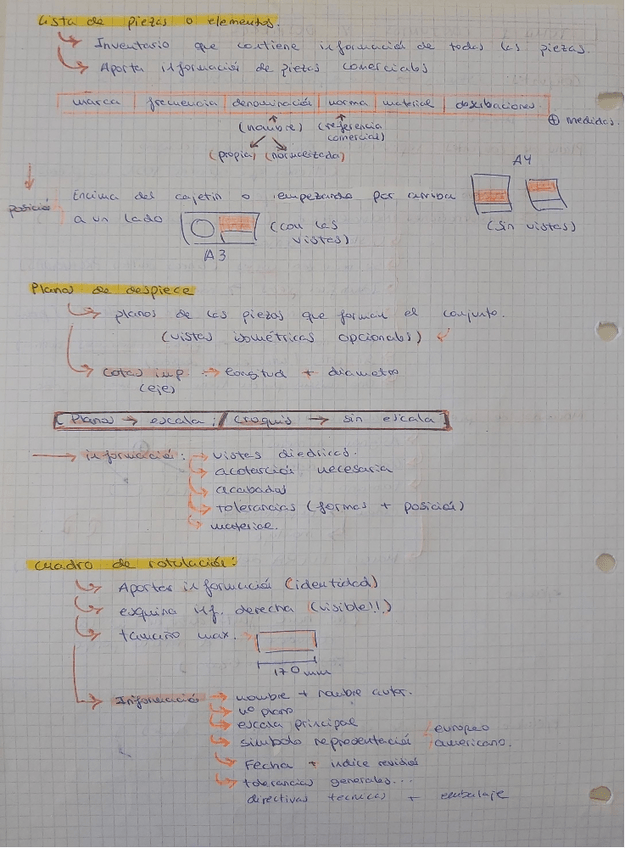 Lista de piezas o elementos.
Inventario que contiene información de todas las piezas.
Aporta información de piezas comerciales
marca | frecuencia | denominación | norma | material | observaciones. + medidas.
(nombre) (referencia comercial)
(propia) (normalizada)
A4
posición Encima del cajetín o empezando por arriba
a un lado (con las vistas) (sin vistas)
A3
Planos de despiece
planos de las piezas que forman el conjunto.
(vistas isométricas opcionales)
cotas imp. → longitud + diametro
(eje)
Planos → escala / croquis → sin escala
información: vistas diedricas.
acotación necesaria
acabados
tolerancias (formas + posición)
material.
cuadro de rotulación:
Aportar información (identidad)
esquina inf. derecha (visible!!)
tamaño max.
170 mm
Información → nombre + nombre autor.
nº plano
escala principal
simbolo representación europeo
americano.
Fecha + indice revisión
tolerancias generales...
directivas tecnicas + embalaje